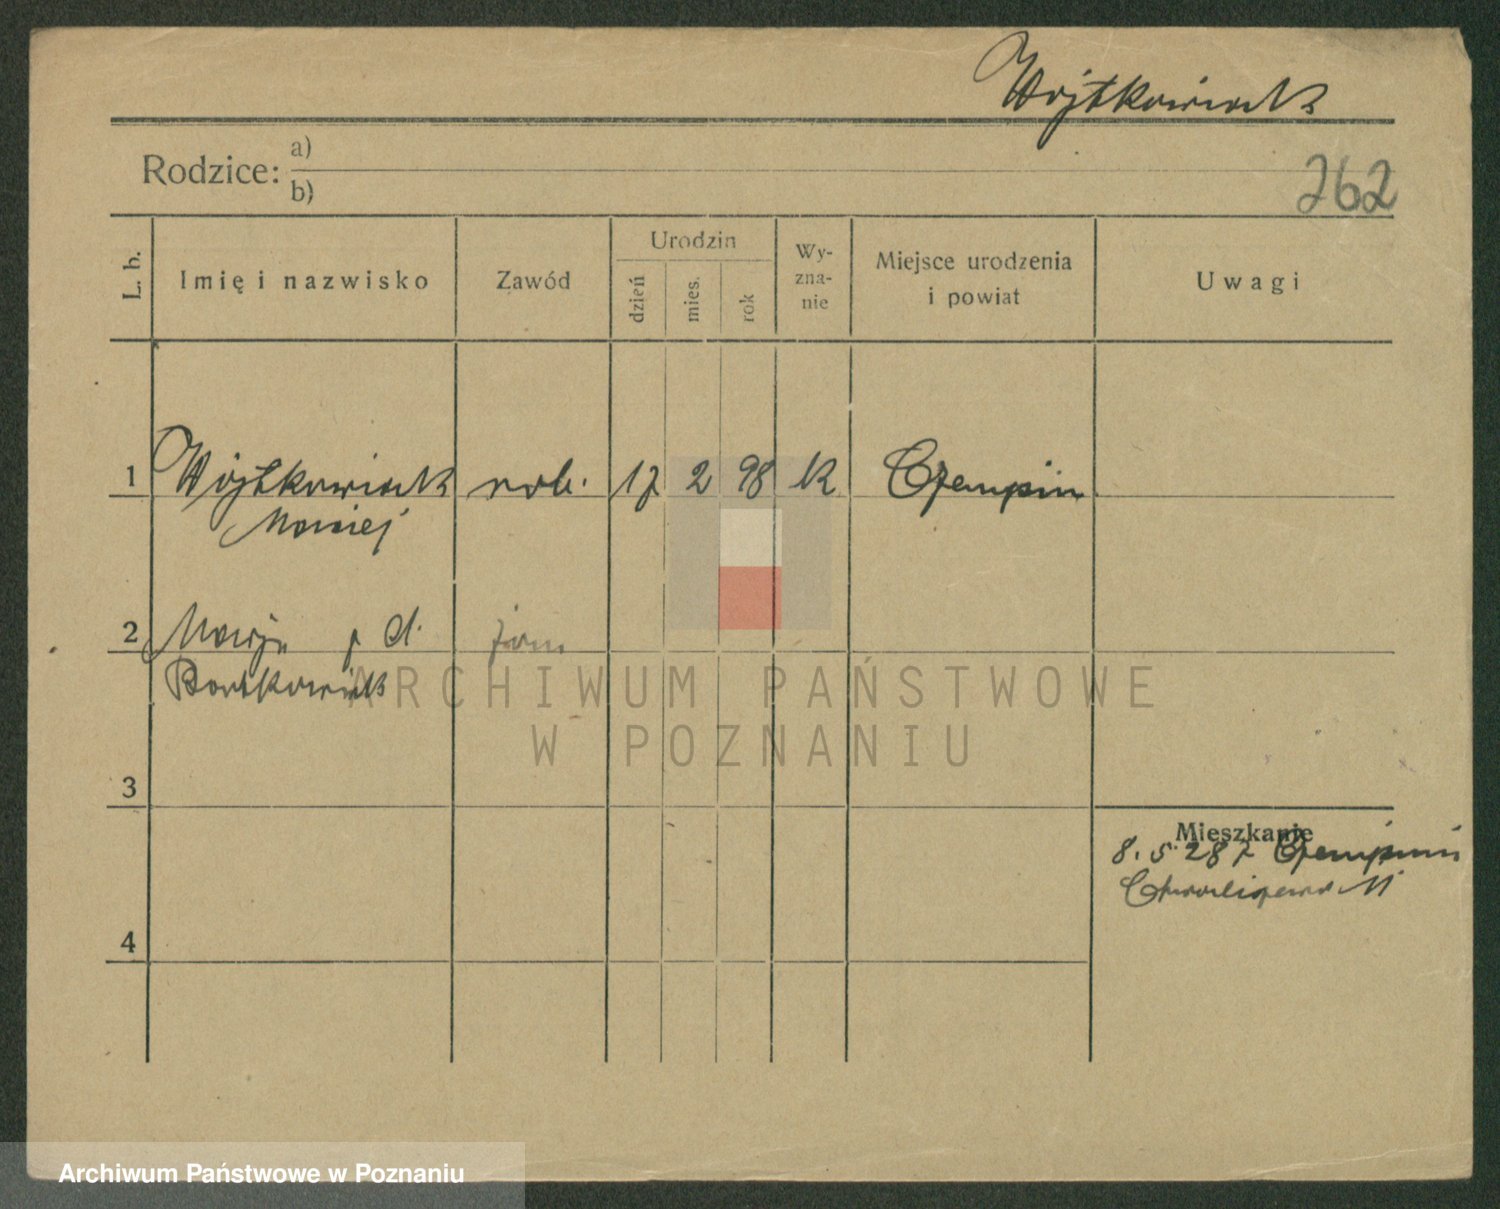 Wojtkowiak
Rodzice: a)
b)
262
L. b.
Imię i nazwisko
Zawód
Urodzin
dzień
mies.
rok
Wy-
zna-
nie
Miejsce urodzenia
i powiat
Uwagi
1 Wojtkowiak rob. 17 2 98 K Czempin
Maciej
2 Marja z d.
Bartkowiak
ARCHIWUM PAŃSTWOWE
W POZNANIU
3
Mieszkanie
8. 5. 28 z Czempinia
4
Archiwum Państwowe w Poznaniu